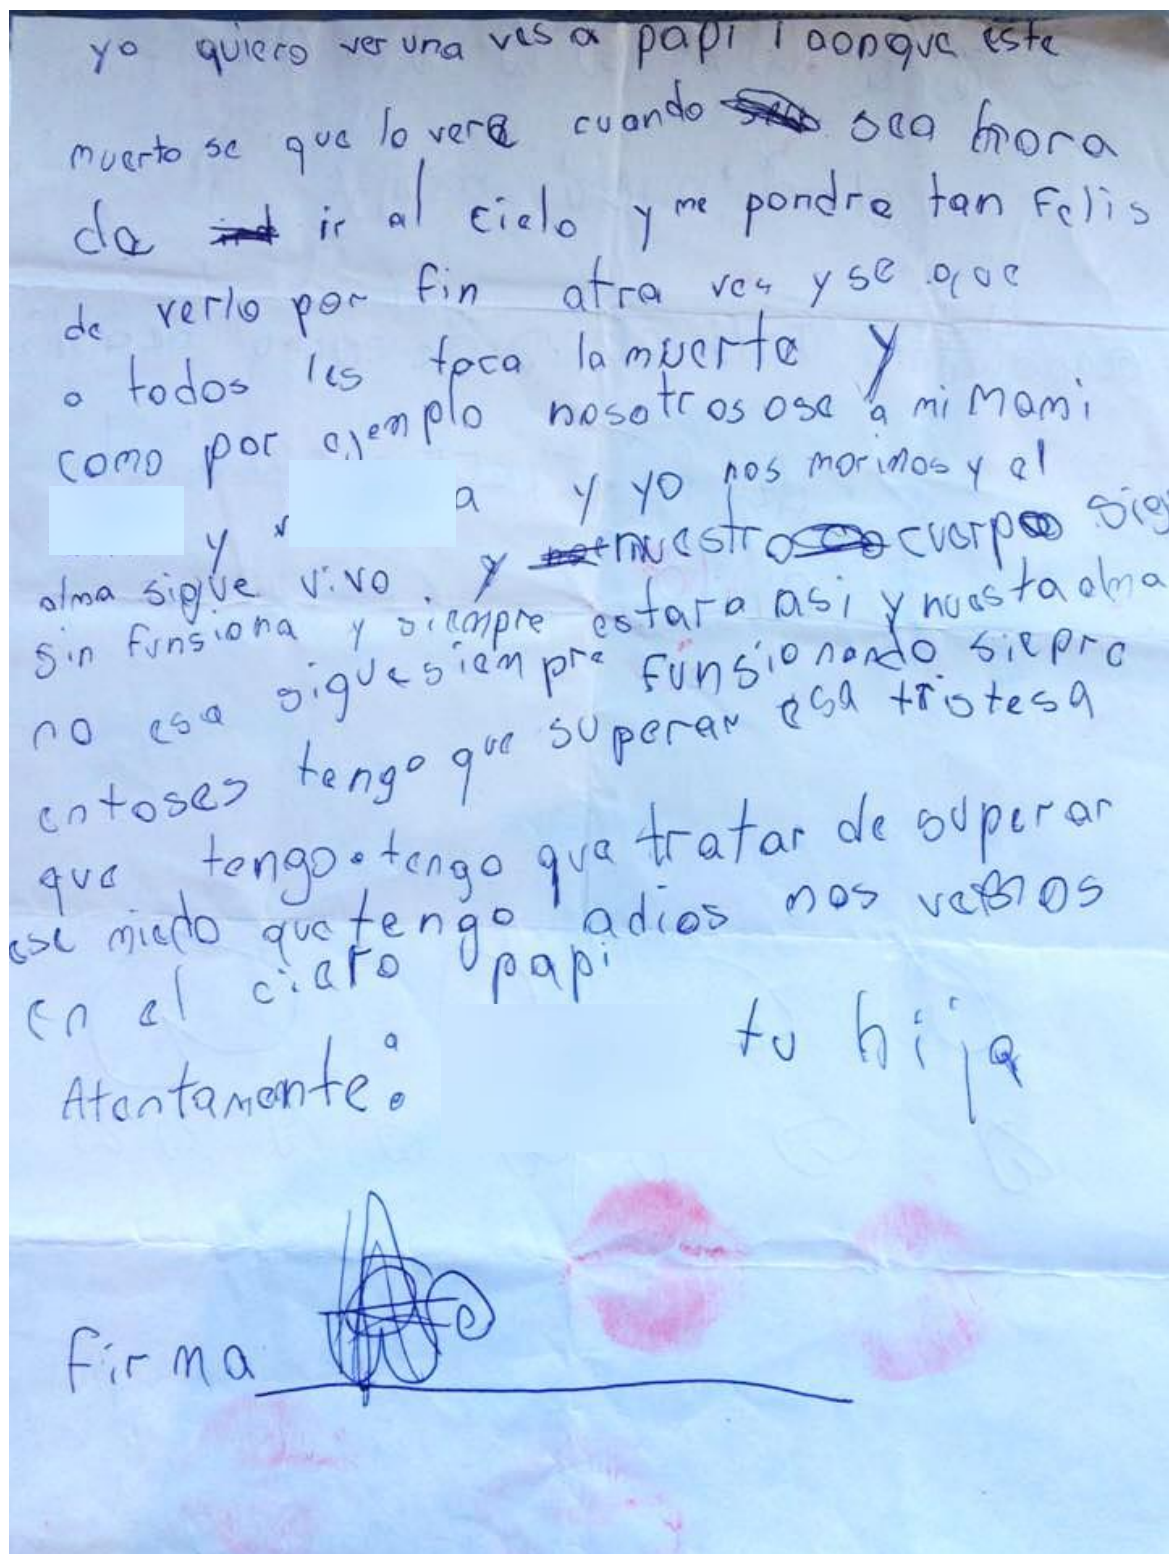 yo quiero ver una ves a papi i aonque este
muerto se que lo vere cuando sea hora
de ir al cielo y me pondre tan Felis
de verlo por fin atra ves y se que
a todos les toca la muerte y
como por ejemplo nosotros ose a mi Mami
y a y yo nos morimos y el
alma sigue vivo. y nuestro cuerpo sig
sin funsiona y siempre estara asi y nuesta alma
no esa sigue siempre funsionando siepre
entoses tengo que superar esa tristesa
que tengo. tengo que tratar de superar
ese miedo que tengo adios nos vemos
en el cielo papi
tu hija
Atentamente:
firma